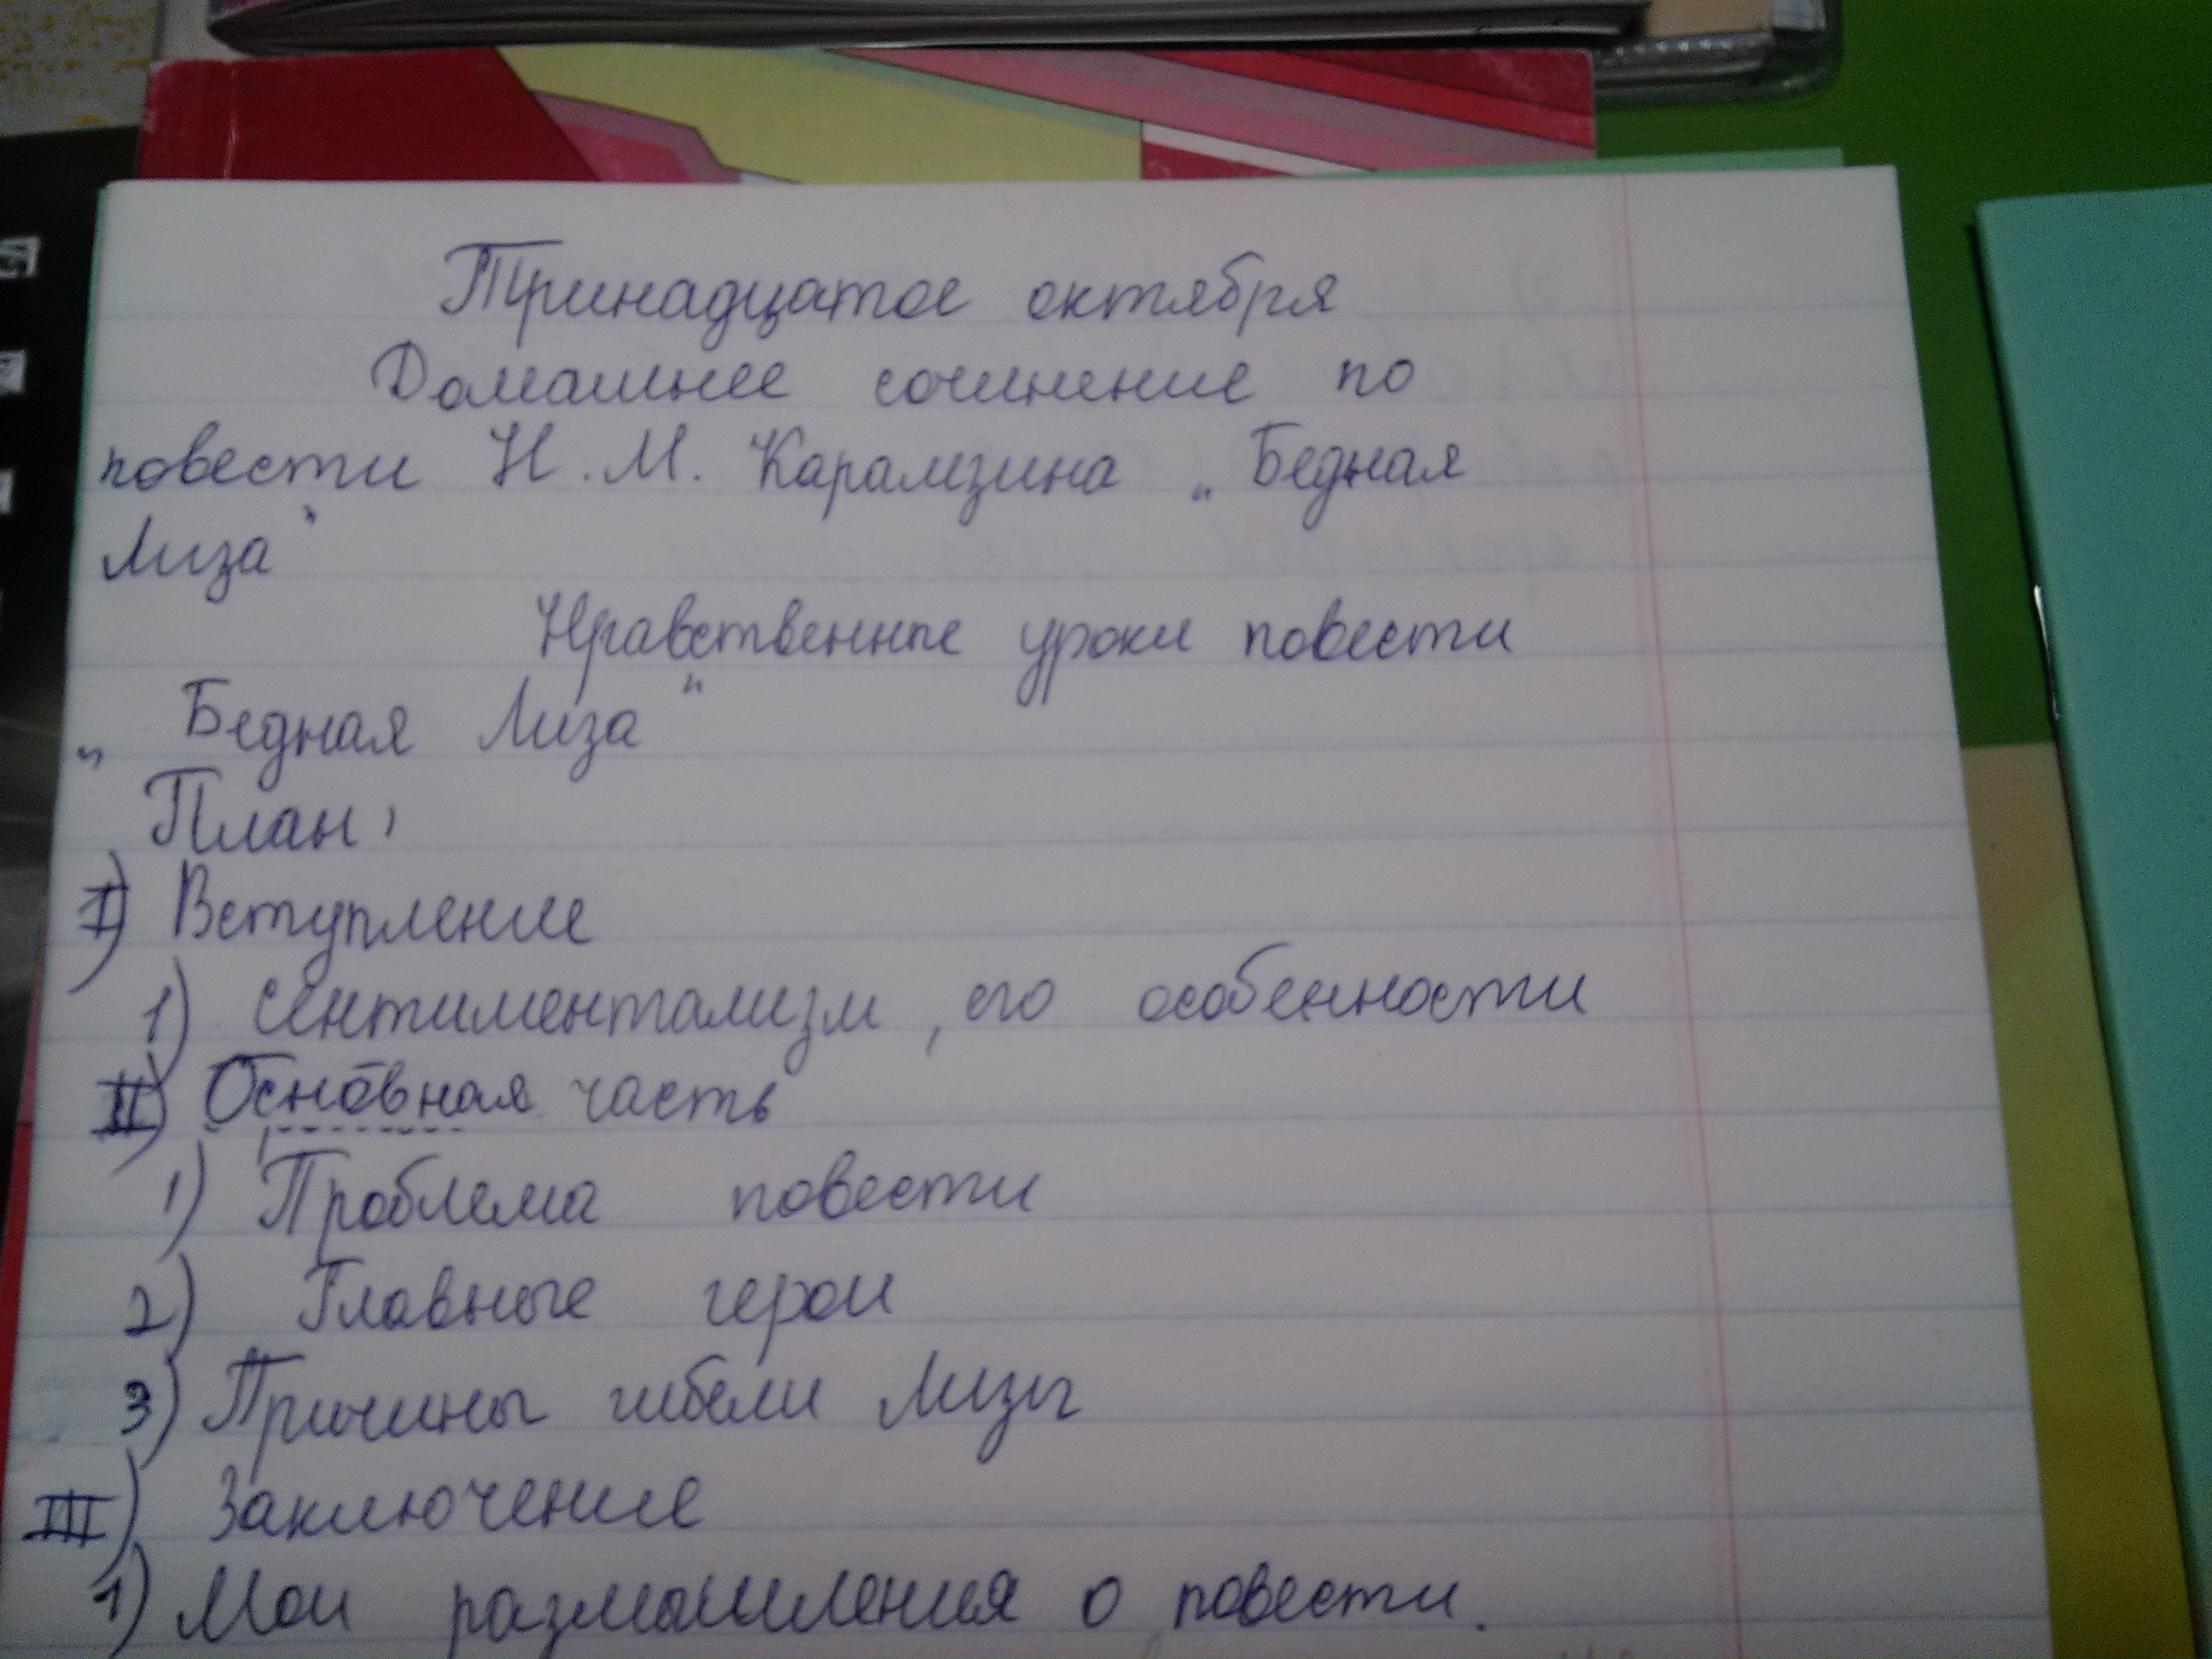 Тринадцатое октября
Домашнее сочинение по
повести Н.М. Карамзина „Бедная
Лиза"
Нравственные уроки повести
„Бедная Лиза"
План:
I) Вступление
1) Сентиментализм, его особенности
II) Основная часть
1) Проблема повести
2) Главные герои
3) Причины гибели Лизы
III) Заключение
1) Мои размышления о повести.